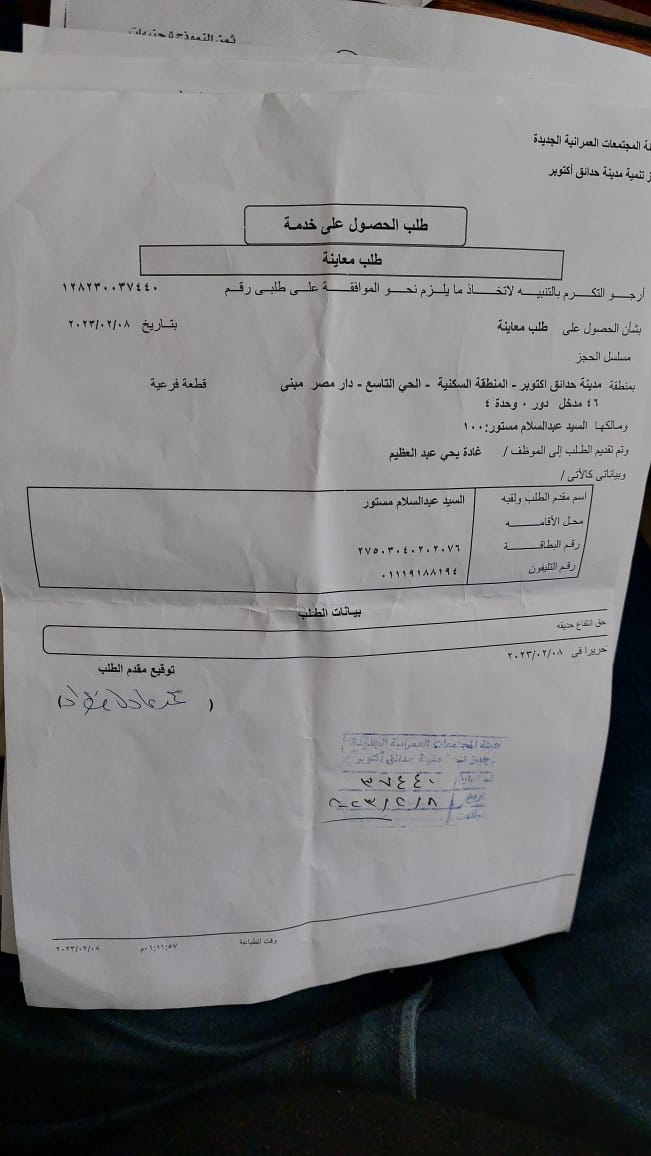 ثمن النموذج ٥ جنيهات
المجتمعات العمرانية الجديدة
تنمية مدينة حدائق أكتوبر
طلب الحصول على خدمة
طلب معاينة
أرجو التكرم بالتنبيه لاتخاذ ما يلزم نحو الموافقة على طلبى رقم ١٢٨٢٣٠٠٣٧٤٤٠
بشأن الحصول على طلب معاينة بتاريخ ٢٠٢٣/٠٢/٠٨
مسلسل الحجز
بمنطقة مدينة حدائق اكتوبر - المنطقة السكنية - الحي التاسع - دار مصر مبنى قطعة فرعية
٤٦ مدخل دور ٠ وحدة ٤
ومالكها السيد عبدالسلام مستور:١٠٠
وتم تقديم الطلب إلى الموظف / غادة يحي عبد العظيم
وبياناتى كالأتى /
اسم مقدم الطلب ولقبه السيد عبدالسلام مستور
محل الأقامه
رقم البطاقة ٢٧٥٠٣٠٤٠٢٠٢٠٧٦
رقم التليفون ٠١١١٩١٨٨١٩٤
بيانات الطلب
حق انتفاع حديقه
تحريرا فى ٢٠٢٣/٠٢/٠٨
توقيع مقدم الطلب
هيئة المجتمعات العمرانية الجديدة
جهاز مدينة حدائق أكتوبر
٣٧٤٤٠
٢٠٢٣/٢/٨
وقت الطباعة ٠١:١١:٥٧م ٢٠٢٣/٠٢/٠٨